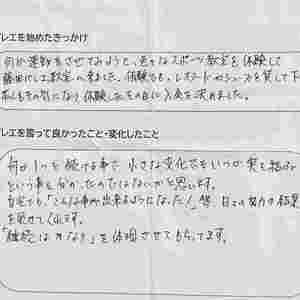 バレエを始めたきっかけ
何か運動をさせてみようと、色々なスポーツ教室を体験して
藤田バレエ教室へ来ました。体験でも、レオタードやシューズを貸して下
本人もその気になり体験したその日に入会を決めました。
バレエを習って良かったこと・変化したこと
何か1つを続ける事で、小さな変化でもいつか実を結ぶ
という事を分かったのではないかと思います。
自宅でも「こんな事が出来るようになった!」等、日々の努力の結果
を見せてくれます。
「継続は力なり」を体現させてもらってます。